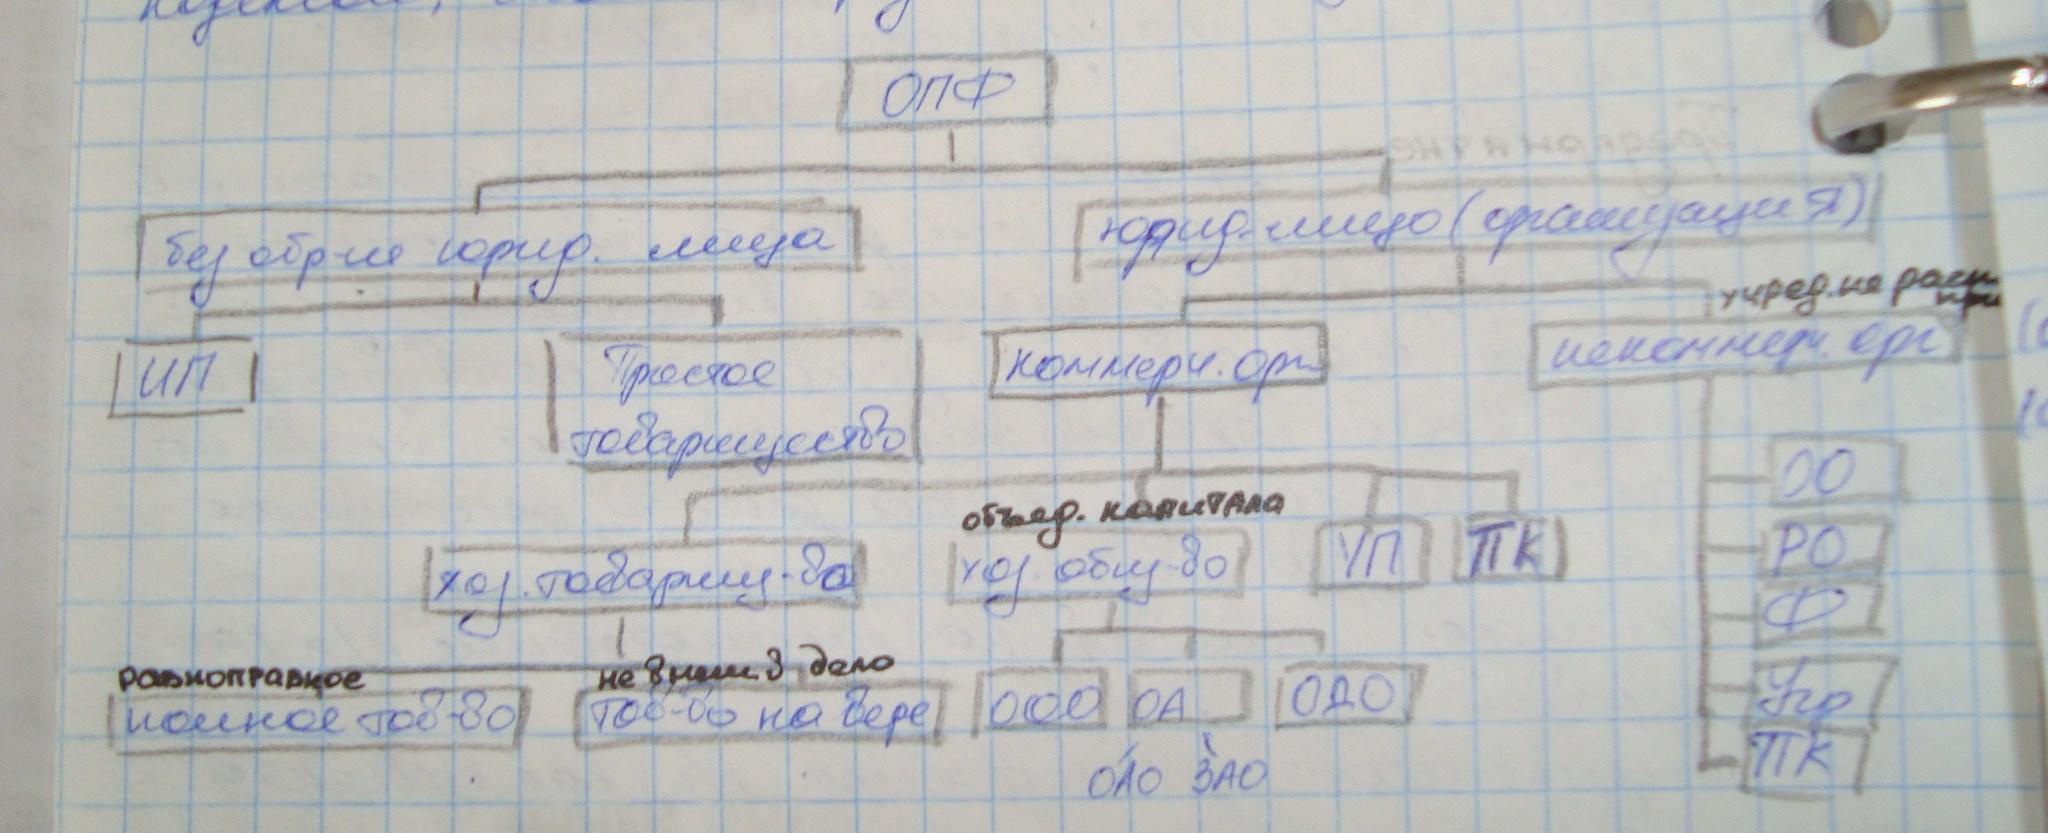 ОПФ
без обр-ие юрид. лица
юрид. лицо (организация)
учред. не расп
ИП
Простое
товарищество
коммерч. орг
некоммерч. орг
объед. капитала
хоз. товарищ-ва
хоз. общ-во
УП
ПК
ОО
РО
Ф
Учр
ПК
равноправное
не вним в дело
полное тов-во
тов-во на вере
ООО
ОА
ОДО
ОАО ЗАО